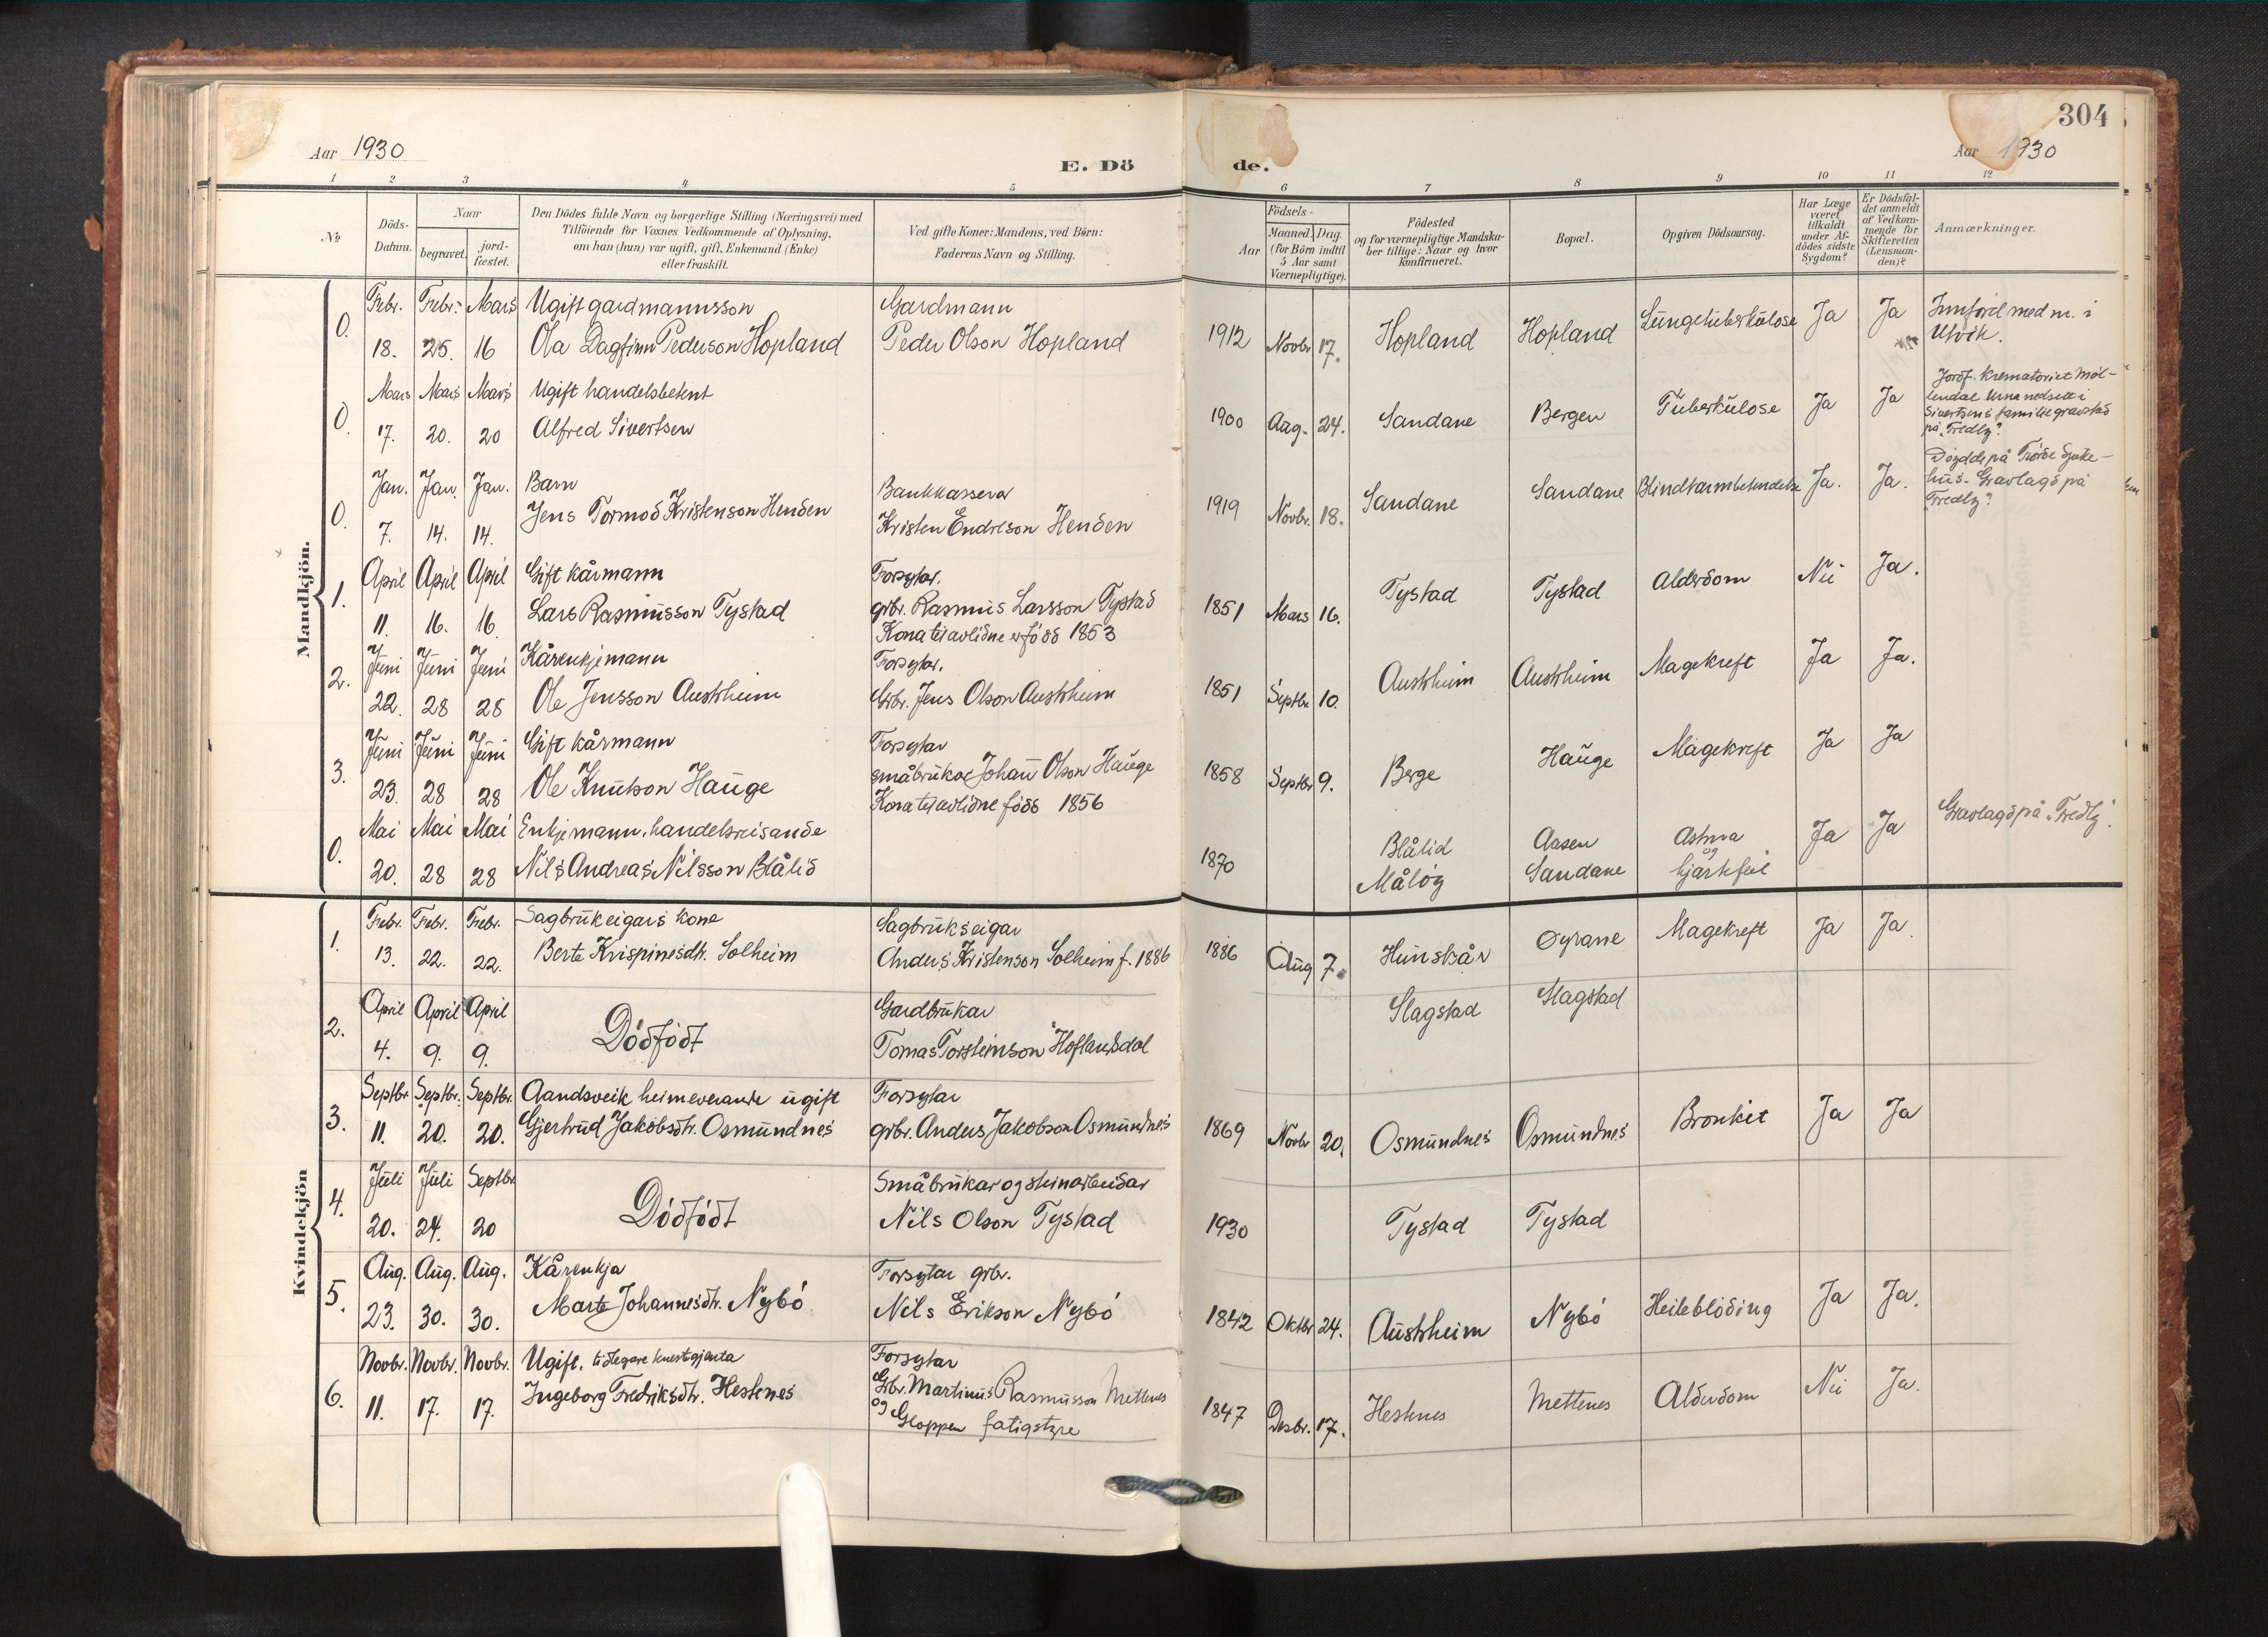 304
Aar 1930
E. Döde.
Aar 1930
1 2 3 4 5 6 7 8 9 10 11 12
No
Döds-Datum.
Naar
begravet.
jord-fæstet.
Den Dödes fulde Navn og borgerlige Stilling (Næringsvei) med
Tilföiende for Voxnes Vedkommende af Oplysning,
om han (hun) var ugift, gift, Enkemand (Enke)
eller fraskilt.
Ved gifte Koner: Mandens, ved Börn:
Faderens Navn og Stilling.
Födsels-
Aar
Maaned. Dag.
(for Börn indtil
5 Aar samt
Værnepligtige).
Födested
og for værnepligtige Mandska-
ber tillige: Naar og hvor
konfirmeret.
Bopæl.
Opgiven Dödsaarsag.
Har Læge
været
tilkaldt
under Af-
dödes sidste
Sygdom?
Er Dödsfal-
det anmeldt
af Vedkom-
mende for
Skifteretten
(Lensman-
den)?
Anmærkninger.
Mandkjön.
0. Febr. 18. Febr. 25. Mars 16
Ugift gardmannsson
Ola Dagfinn Pederson Hopland
Gardmann
Peder Olson Hopland
1912 Novbr 17. Hopland Hopland Lungetuberkulose Ja Ja
Innførd med m. i
Utvik.
0. Mars 17. Mars 20. Mars 20
Ugift handelsbetent
Alfred Sivertsen
1900 Aug. 24. Sandane Bergen Tuberkulose Ja Ja
Jordf. Krematoriet Møl-
lendal Urne nedsett i
Sivertsens familiegravstad
på "Fredly".
0. Jan. 7. Jan. 14. Jan. 14.
Barn
Jens Tormod Kristenson Henden
Bankkasserar
Kristen Endreson Henden
1919 Novbr. 18. Sandane Sandane Blindtarmbetendelse Ja. Ja.
Døydde på Førde Sjuke-
hus. Gravlagd på
"Fredly".
1. April 11. April 16. April 16.
Gift kårmann
Lars Rasmusson Tystad
Forsytar.
grbr. Rasmus Larsson Tystad
Kona til avlidne er född 1853
1851 Mars 16. Tystad Tystad Alderdom Nei Ja.
2. Juni 22. Juni 28 Juni 28
Kårenkjemann
Ole Jensson Austrheim
Forsytar.
Grbr. Jens Olson Austrheim
1851 Septbr. 10. Austrheim Austrheim Magekreft Ja Ja.
3. Juni 23. Juni 28 Juni 28
Gift kårmann
Ole Knutson Hauge
Forsytar
småbrukar Johan Olson Hauge
Kona til avlidne född 1856
1858 Septbr 9. Berge Hauge Magekreft Ja Ja
0. Mai 20. Mai 28 Mai 28
Enkjemann, handelsreisande
Nils Andreas Nilsson Blålid
1870 Blålid Måløy
Aasen Sandane
Astma og hjartefeil Ja Ja
Gravlagd på "Fredly".
Kvindekjön
1. Febr. 13. Febr. 22. Febr. 22.
Sagbrukeigars kone
Berte Krispinesdtr. Solheim
Sagbrukseigar
Anders Kristenson Solheim f. 1886
1886 Aug 7. Hunskår Øyrane Magekreft Ja Ja.
2. April 4. April 9. April 9.
Dödfödt
Gardbrukar
Tomas Torsteinson Høflandsdal
Slagstad Slagstad
3. Septbr. 11. Septbr. 20. Septbr. 20.
Aandsveik heimeverande ugift
Gjertrud Jakobsdtr. Osmundnes
Forsytar
grbr. Anders Jakobson Osmundnes
1869 Novbr 20. Osmundnes Osmundnes Bronkit Ja Ja
4. Juli 20. Juli 24. Septbr 20
Dödfödt
Småbrukar og steinarbeidar
Nils Olson Tystad
1930 Tystad Tystad
5. Aug. 23. Aug. 30. Aug. 30.
Kårenkja
Marte Johannesdtr. Nybö
Forsytar grbr.
Nils Erikson Nybö
1842 Oktbr 24. Austrheim Nybö Heileblöding Ja Ja.
6. Novbr. 11. Novbr. 17. Novbr. 17.
Ugift, tidlegare tenestgjenta
Ingeborg Fredriksdtr. Hestenes
Forsytar
Grbr. Martinus Rasmusson Mettenes
og Gloppen fatigstyre
1847 Desbr. 17. Hestenes Mettenes Alderdom Nei Ja.